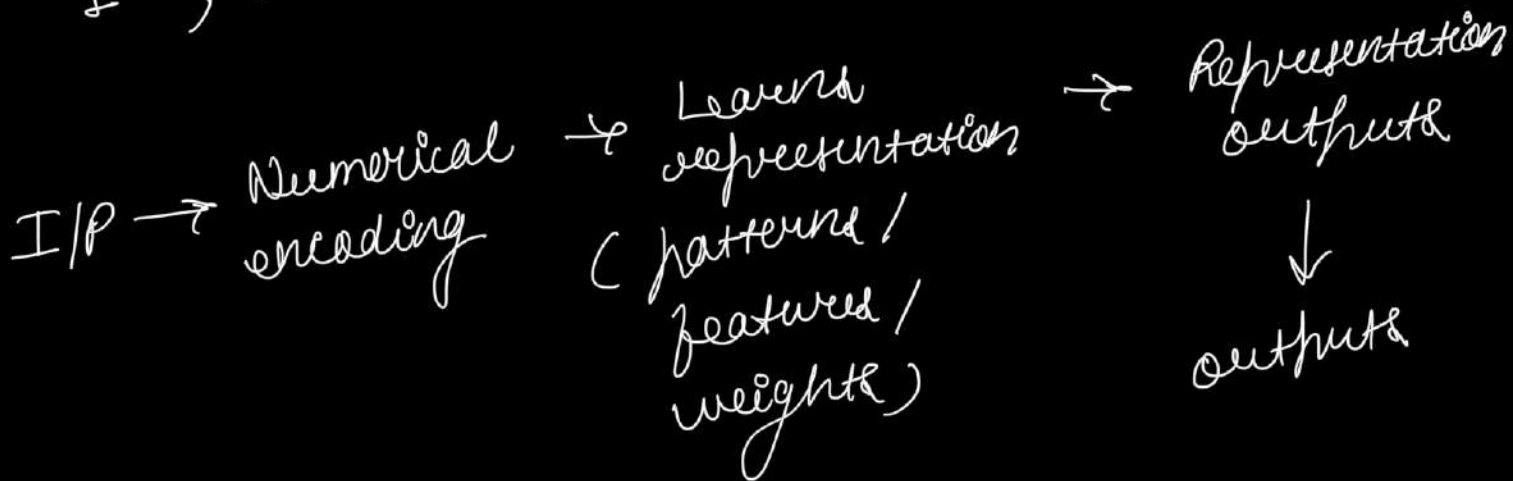 I/P → Numerical encoding → Learns representation (patterns / features / weights) → Representation outputs
↓
outputs